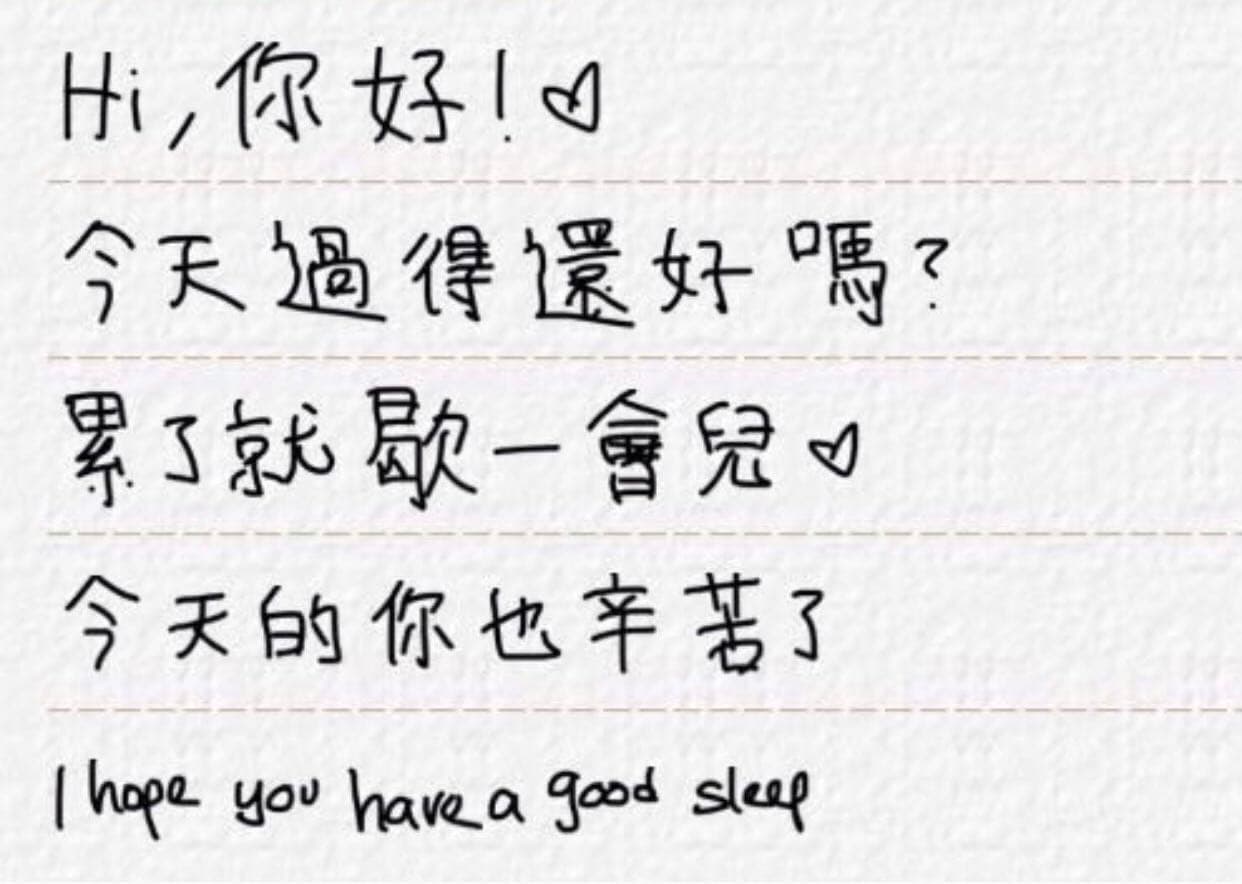 Hi,你好!♡
今天過得還好嗎?
累了就歇一會兒♡
今天的你也辛苦了
I hope you have a good sleep